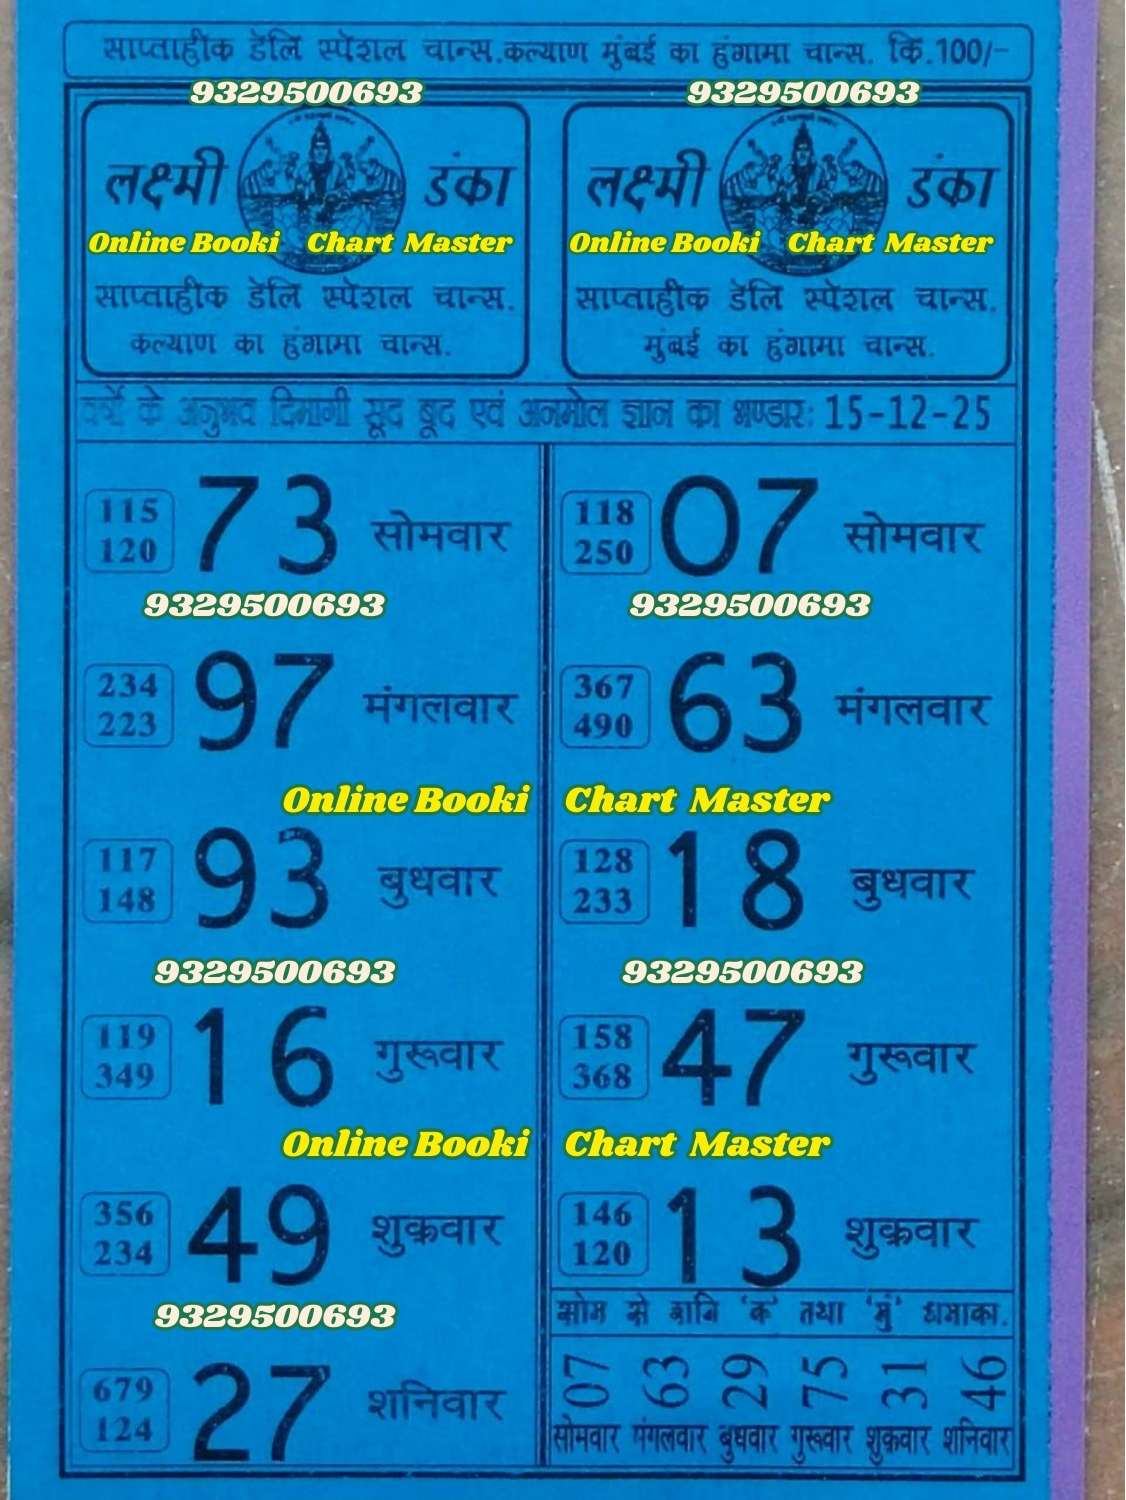 साप्ताहीक डेलि स्पेशल चान्स.कल्याण मुंबई का हुंगामा चान्स. कि.100/-
9329500693 9329500693
लक्ष्मी डंका
Online Booki Chart Master
साप्ताहीक डेलि स्पेशल चान्स.
कल्याण का हुंगामा चान्स.
लक्ष्मी डंका
Online Booki Chart Master
साप्ताहीक डेलि स्पेशल चान्स.
मुंबई का हुंगामा चान्स.
वर्षो के अनुभव दिमागी सूद बूद एवं अनमोल ज्ञान का भण्डार: 15-12-25
115
120 73 सोमवार
118
250 07 सोमवार
9329500693 9329500693
234
223 97 मंगलवार
367
490 63 मंगलवार
Online Booki Chart Master
117
148 93 बुधवार
128
233 18 बुधवार
9329500693 9329500693
119
349 16 गुरूवार
158
368 47 गुरूवार
Online Booki Chart Master
356
234 49 शुक्रवार
146
120 13 शुक्रवार
9329500693
679
124 27 शनिवार
सोम से शनि 'क' तथा 'मुं' धमाका.
07 63 29 75 31 46
सोमवार मंगलवार बुधवार गुरूवार शुक्रवार शनिवार